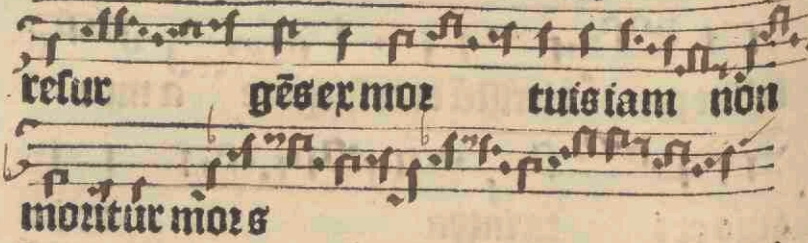 reſur gēs ex moꝛ tuis iam non
moritur moꝛs